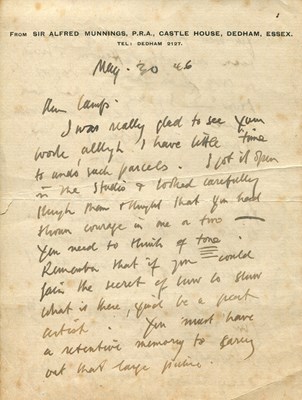 From SIR ALFRED MUNNINGS, P.R.A., CASTLE HOUSE, DEDHAM, ESSEX.
TEL: DEDHAM 2127.
May. 30 46
Dear
I was really glad to see your
work altho' I have little time
to undo such parcels. I got it open
in the studio & looked carefully
through them & thought that you had
shown courage in one or two —
You need to think of tone.
Remember that if you could
gain the secret of how to show
what is there, you'd be a great
artist. You must have
a retentive memory to carry
out that large picture.